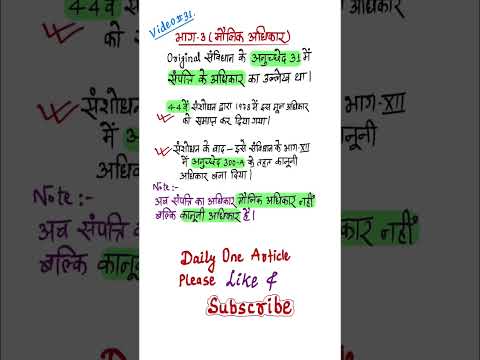 Video#31.
भाग-3 (मौलिक अधिकार)
Original संविधान के अनुच्छेद 31 में
संपत्ति के अधिकार का उल्लेख था।
44वें संशोधन द्वारा 1978 में इस मूल अधिकार
को समाप्त कर दिया गया।
संशोधन के बाद - इसे संविधान के भाग-XII
में अनुच्छेद 300-A के तहत कानूनी
अधिकार बना दिया।
Note:-
अब संपत्ति का अधिकार मौलिक अधिकार नहीं
बल्कि कानूनी अधिकार है।
Daily One Article
Please Like &
Subscribe